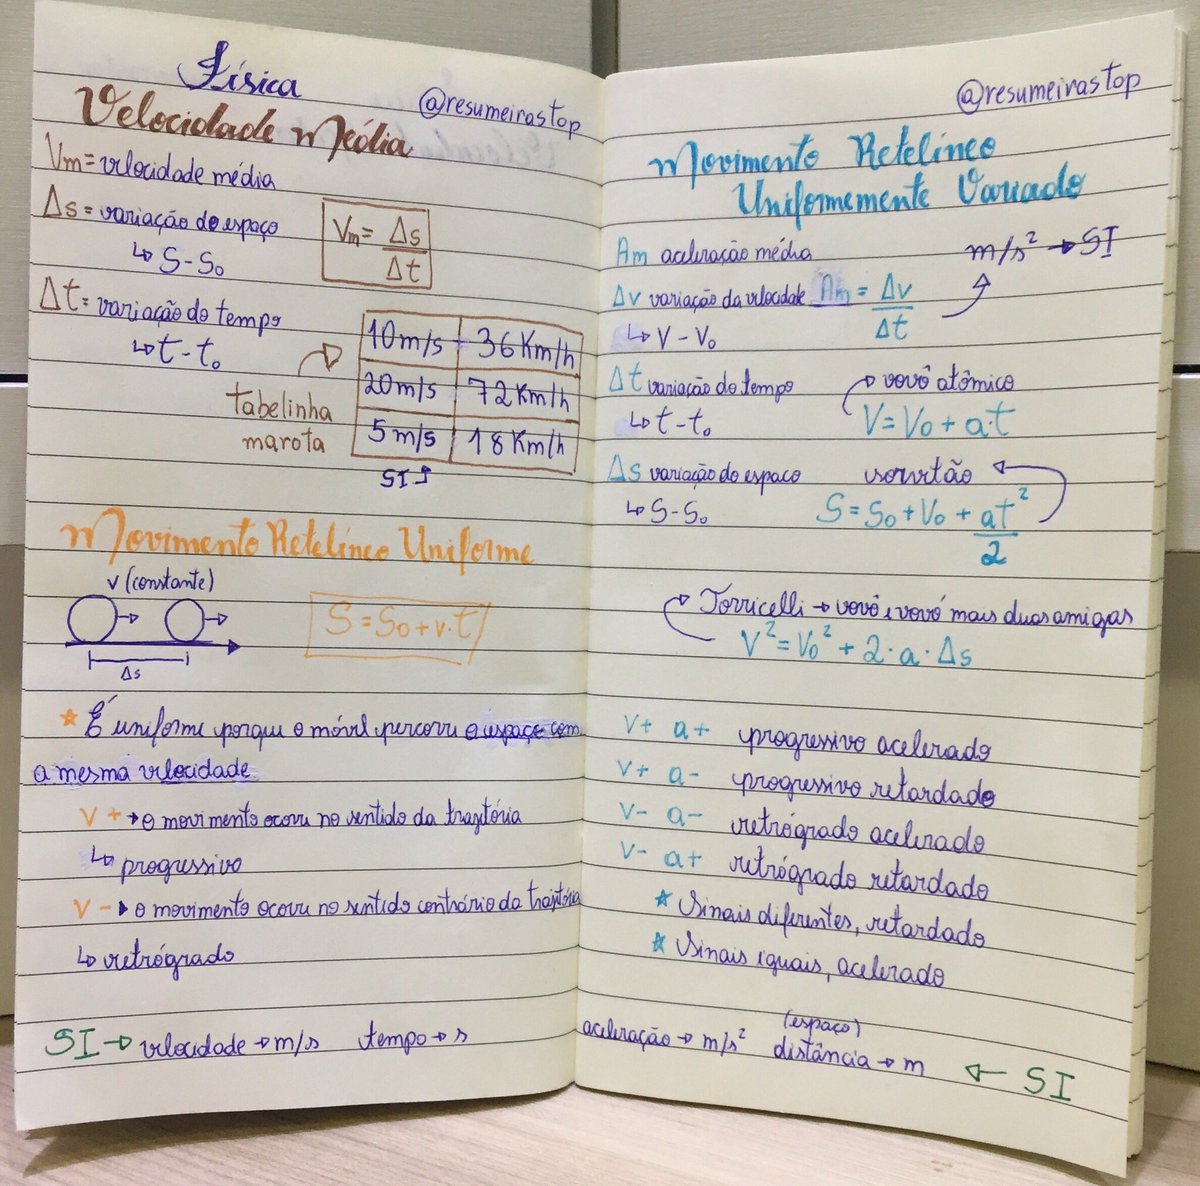 Física
@resumeirastop
Velocidade Média
Vm = velocidade média
Δs = variação do espaço
↳ S - S₀
Vm = Δs/Δt
Δt = variação do tempo
↳ t - t₀
tabelinha
marota
10m/s - 36Km/h
20m/s 72Km/h
5m/s 18Km/h
SI
Movimento Retelíneo Uniforme
v (constante)
Δs
S = S₀ + v·t
★ É uniforme porque o móvel percorre o espaço com
a mesma velocidade
V + → o movimento ocorre no sentido da trajetória
↳ progressivo
V - → o movimento ocorre no sentido contrário da trajetória
↳ retrógrado
SI → velocidade → m/s tempo → s
@resumeirastop
Movimento Retelíneo
Uniformemente Variado
Am aceleração média
m/s² → SI
Δv variação da velocidade Am = Δv/Δt
↳ V - V₀
Δt variação do tempo
↳ t - t₀
vovô atômico
V = V₀ + a·t
Δs variação do espaço
↳ S - S₀
sorvetão
S = S₀ + V₀ + at²/2
Torricelli → vovô e vovó mais duas amigas
V² = V₀² + 2·a·Δs
V+ a+ progressivo acelerado
V+ a- progressivo retardado
V- a- retrógrado acelerado
V- a+ retrógrado retardado
★ Sinais diferentes, retardado
★ Sinais iguais, acelerado
aceleração → m/s² (espaço) distância → m
← SI